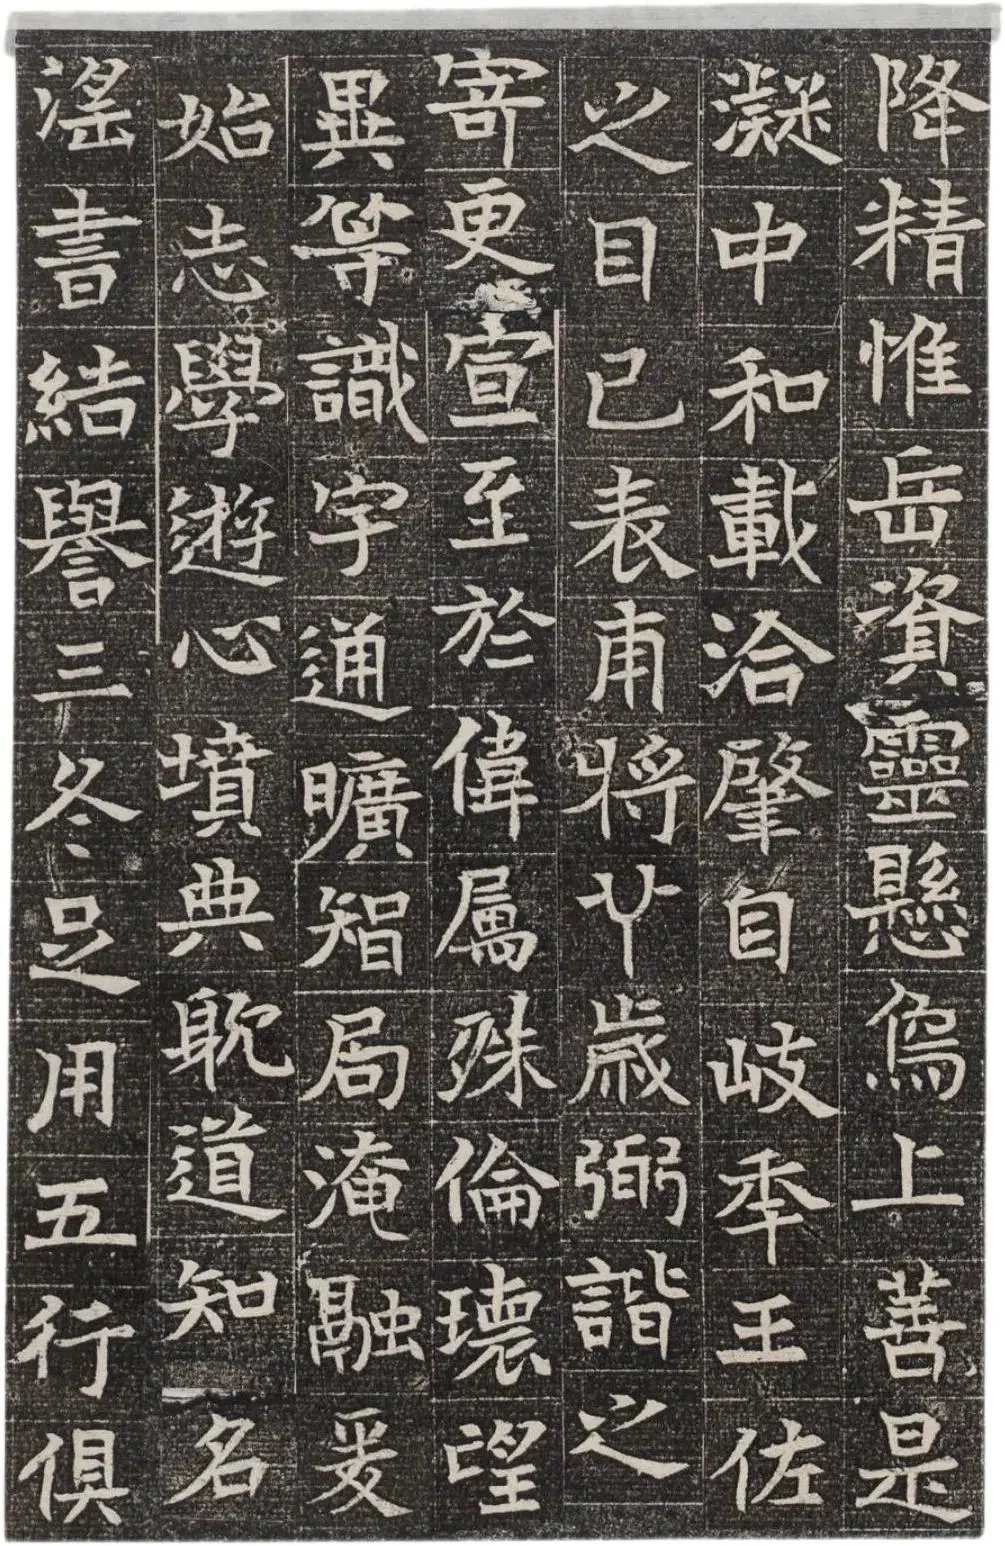 降精惟岳資靈懸烏上善是
凝中和載洽肇自岐秊王佐
之目已表甫將廿歲弼諧之
寄更宣至於偉屬殊倫瓌望
異等識字通曠智局淹融爰
始志學遊心墳典耽道知名
滛書結譽三冬足用五行俱